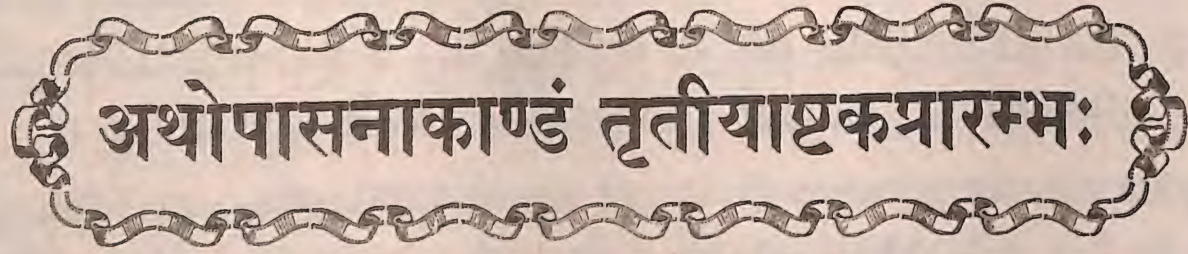 अथोपासनाकाण्डं तृतीयाष्टकप्रारम्भः